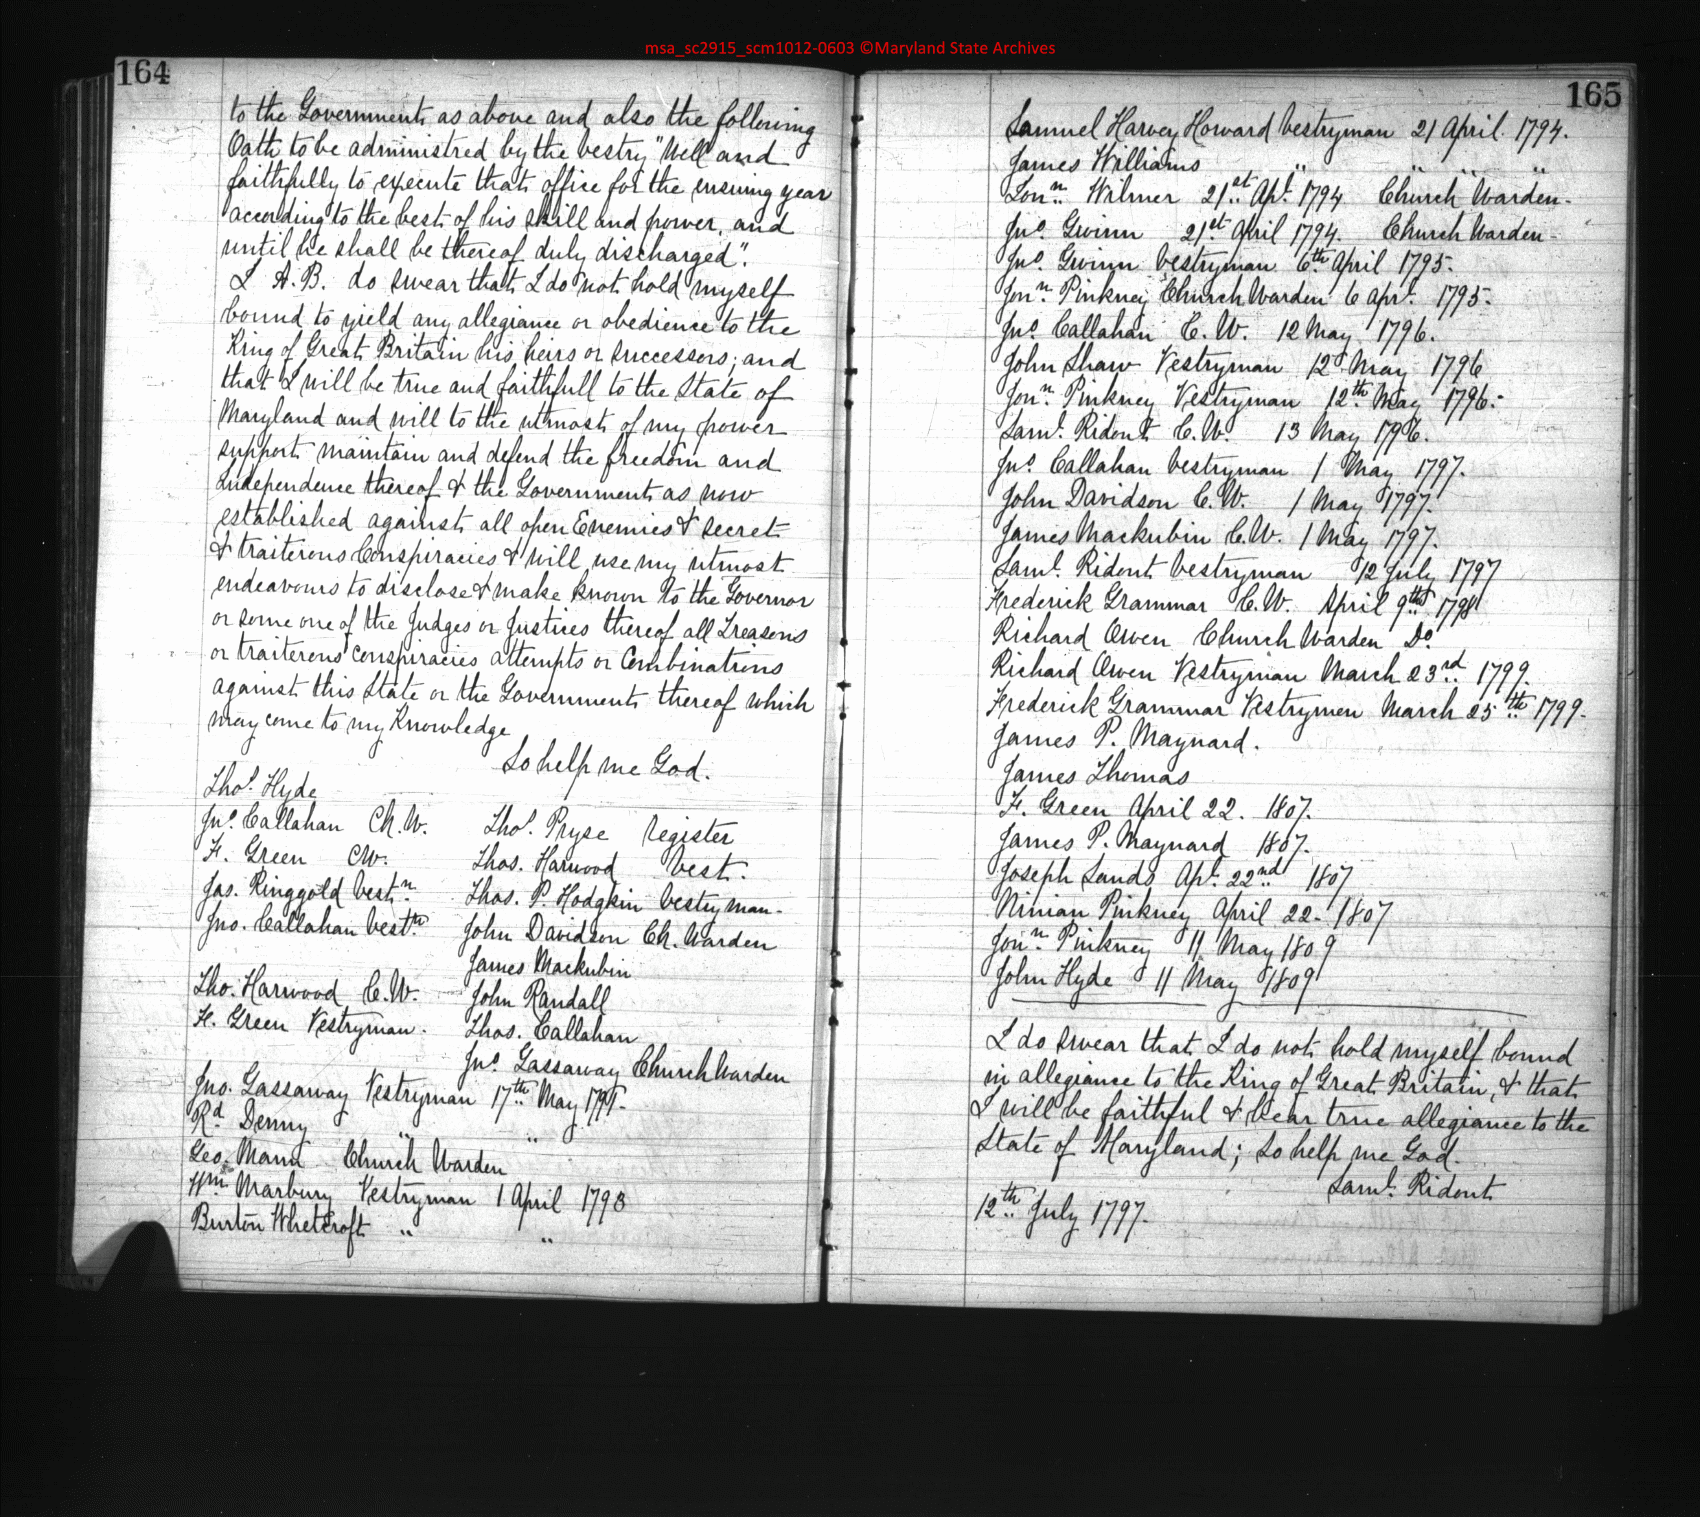 msa_sc2915_scm1012-0603 ©Maryland State Archives
164
to the Government as above and also the following
Oath to be administred by the vestry "Well and
faithfully to execute that office for the ensuing year
according to the best of his skill and power, and
until he shall be thereof duly discharged".
I A.B. do swear that I do not hold myself
bound to yield any allegiance or obedience to the
King of Great Britain his heirs or successors; and
that I will be true and faithfull to the State of
Maryland and will to the utmost of my power
support maintain and defend the freedom and
Independence thereof & the Government as now
established against all open Enemies & secret
& traiterous Conspiracies & will use my utmost
endeavours to disclose & make known to the Governor
or some one of the Judges or Justices thereof all Treasons
or traiterous conspiracies attempts or Combinations
against this State or the Government thereof which
may come to my Knowledge
So help me God.
Thos. Hyde
Jno. Callahan Ch. W. Thos. Pryse register
F. Green CW. Thos. Harwood Vest.
Jas. Ringgold Vestn. Thos. P. Hodgkin Vestryman-
Jno. Callahan Vest John Davidson Ch. Warden
James Mackubin
Tho. Harwood C.W. John Randall
F. Green Vestryman. Thos. Callahan
Jno. Gassaway Church Warden
Jno. Gassaway Vestryman 17th May 1791.
Rd Denny " "
Geo. Mann Church Warden
Wm Marbury Vestryman 1 April 1793
Burton Whetcroft " "
165
Samuel Harvey Howard Vestryman 21 April. 1794.
James Williams " " " "
Jonn. Wilmer 21st. Apl. 1794 Church Warden-
Jno. Gwinn 21st. April 1794. Church Warden-
Jno. Gwinn Vestryman 6th April 1795.
Jonn. Pinkney Church Warden 6 Aprl. 1795.
Jno. Callahan C. W. 12 May 1796.
John Shaw Vestryman 12 May 1796
Jonn. Pinkney Vestryman 12th May 1796.
Saml. Ridout C.W. 13 May 1796.
Jno. Callahan Vestryman 1 May 1797.
John Davidson C.W. 1 May 1797.
James Mackubin C.W. 1 May 1797.
Saml. Ridout Vestryman 12 July 1797
Frederick Grammar C.W. April 9th 1798
Richard Owen Church Warden Do.
Richard Owen Vestryman March 23rd 1799.
Frederick Grammar Vestrymen March 25th 1799.
James P. Maynard.
James Thomas
F. Green April 22. 1807.
James P. Maynard 1807.
Joseph Sands Apl. 22nd 1807
Ninian Pinkney April 22- 1807
Jonn. Pinkney 11 May 1809
John Hyde 11 May 1809
I do swear that I do not hold myself bound
in allegiance to the King of Great Britain, & that
I will be faithful & bear true allegiance to the
State of Maryland; So help me God.
Saml. Ridout
12th July 1797.